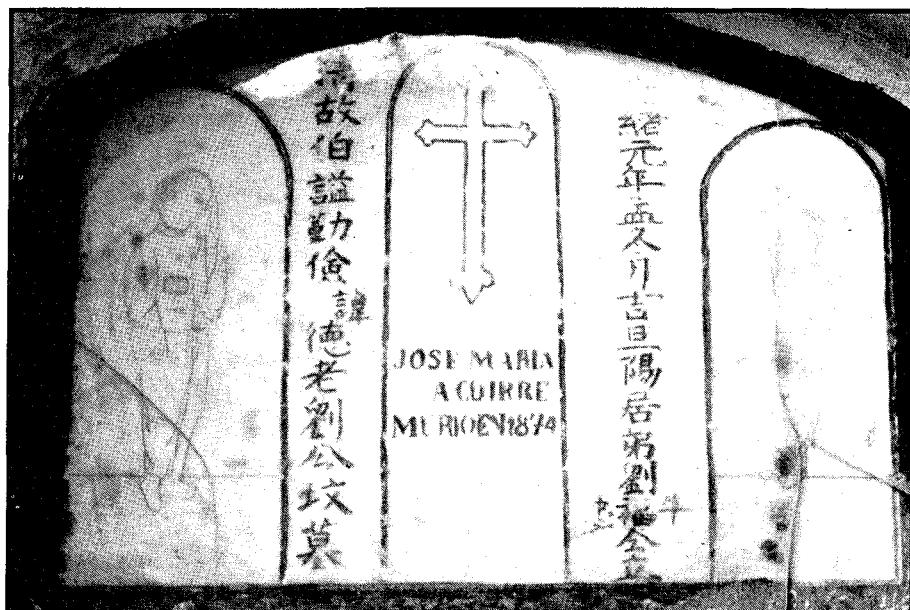 故伯謚勤儉諱德老劉公坟墓
JOSE MARIA
AGUIRRE
MURIO EN 1874
緒元年孟冬月吉旦陽居弟劉全立